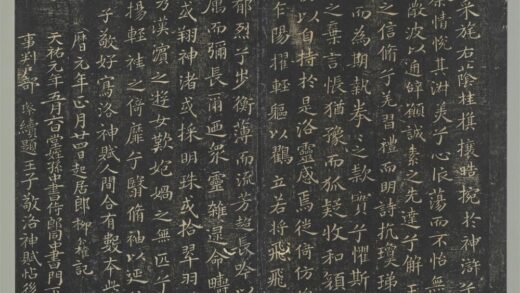 采旄右蔭桂旗攘皓腕於神滸兮
余情悅其淑美兮心振蕩而不怡無
微波以通辭願誠素之先達兮解玉
之信脩兮羌習禮而明詩抗瓊珶
而為期執拳〻之款實兮懼斯
之棄言悵猶豫而狐疑收和顏
防以自持於是洛靈感焉徙倚仿
乍陽擢輕軀以鶴立若將飛
郁烈兮步衡薄而流芳超長吟以
厲而彌長爾乃衆靈雜遝命疇
或翔神渚或採明珠或拾翠羽
攜漢濱之遊女歎匏媧之無匹兮
揚輕袿之倚靡兮翳脩袖以延
子敬好寫洛神賦人間合有數本此
曆元年正月廿四日起居郎柳
記
天祐元年 堂姪孫 書侍郎同 書門
事判戶部 璨續題王子敬洛神賦帖後